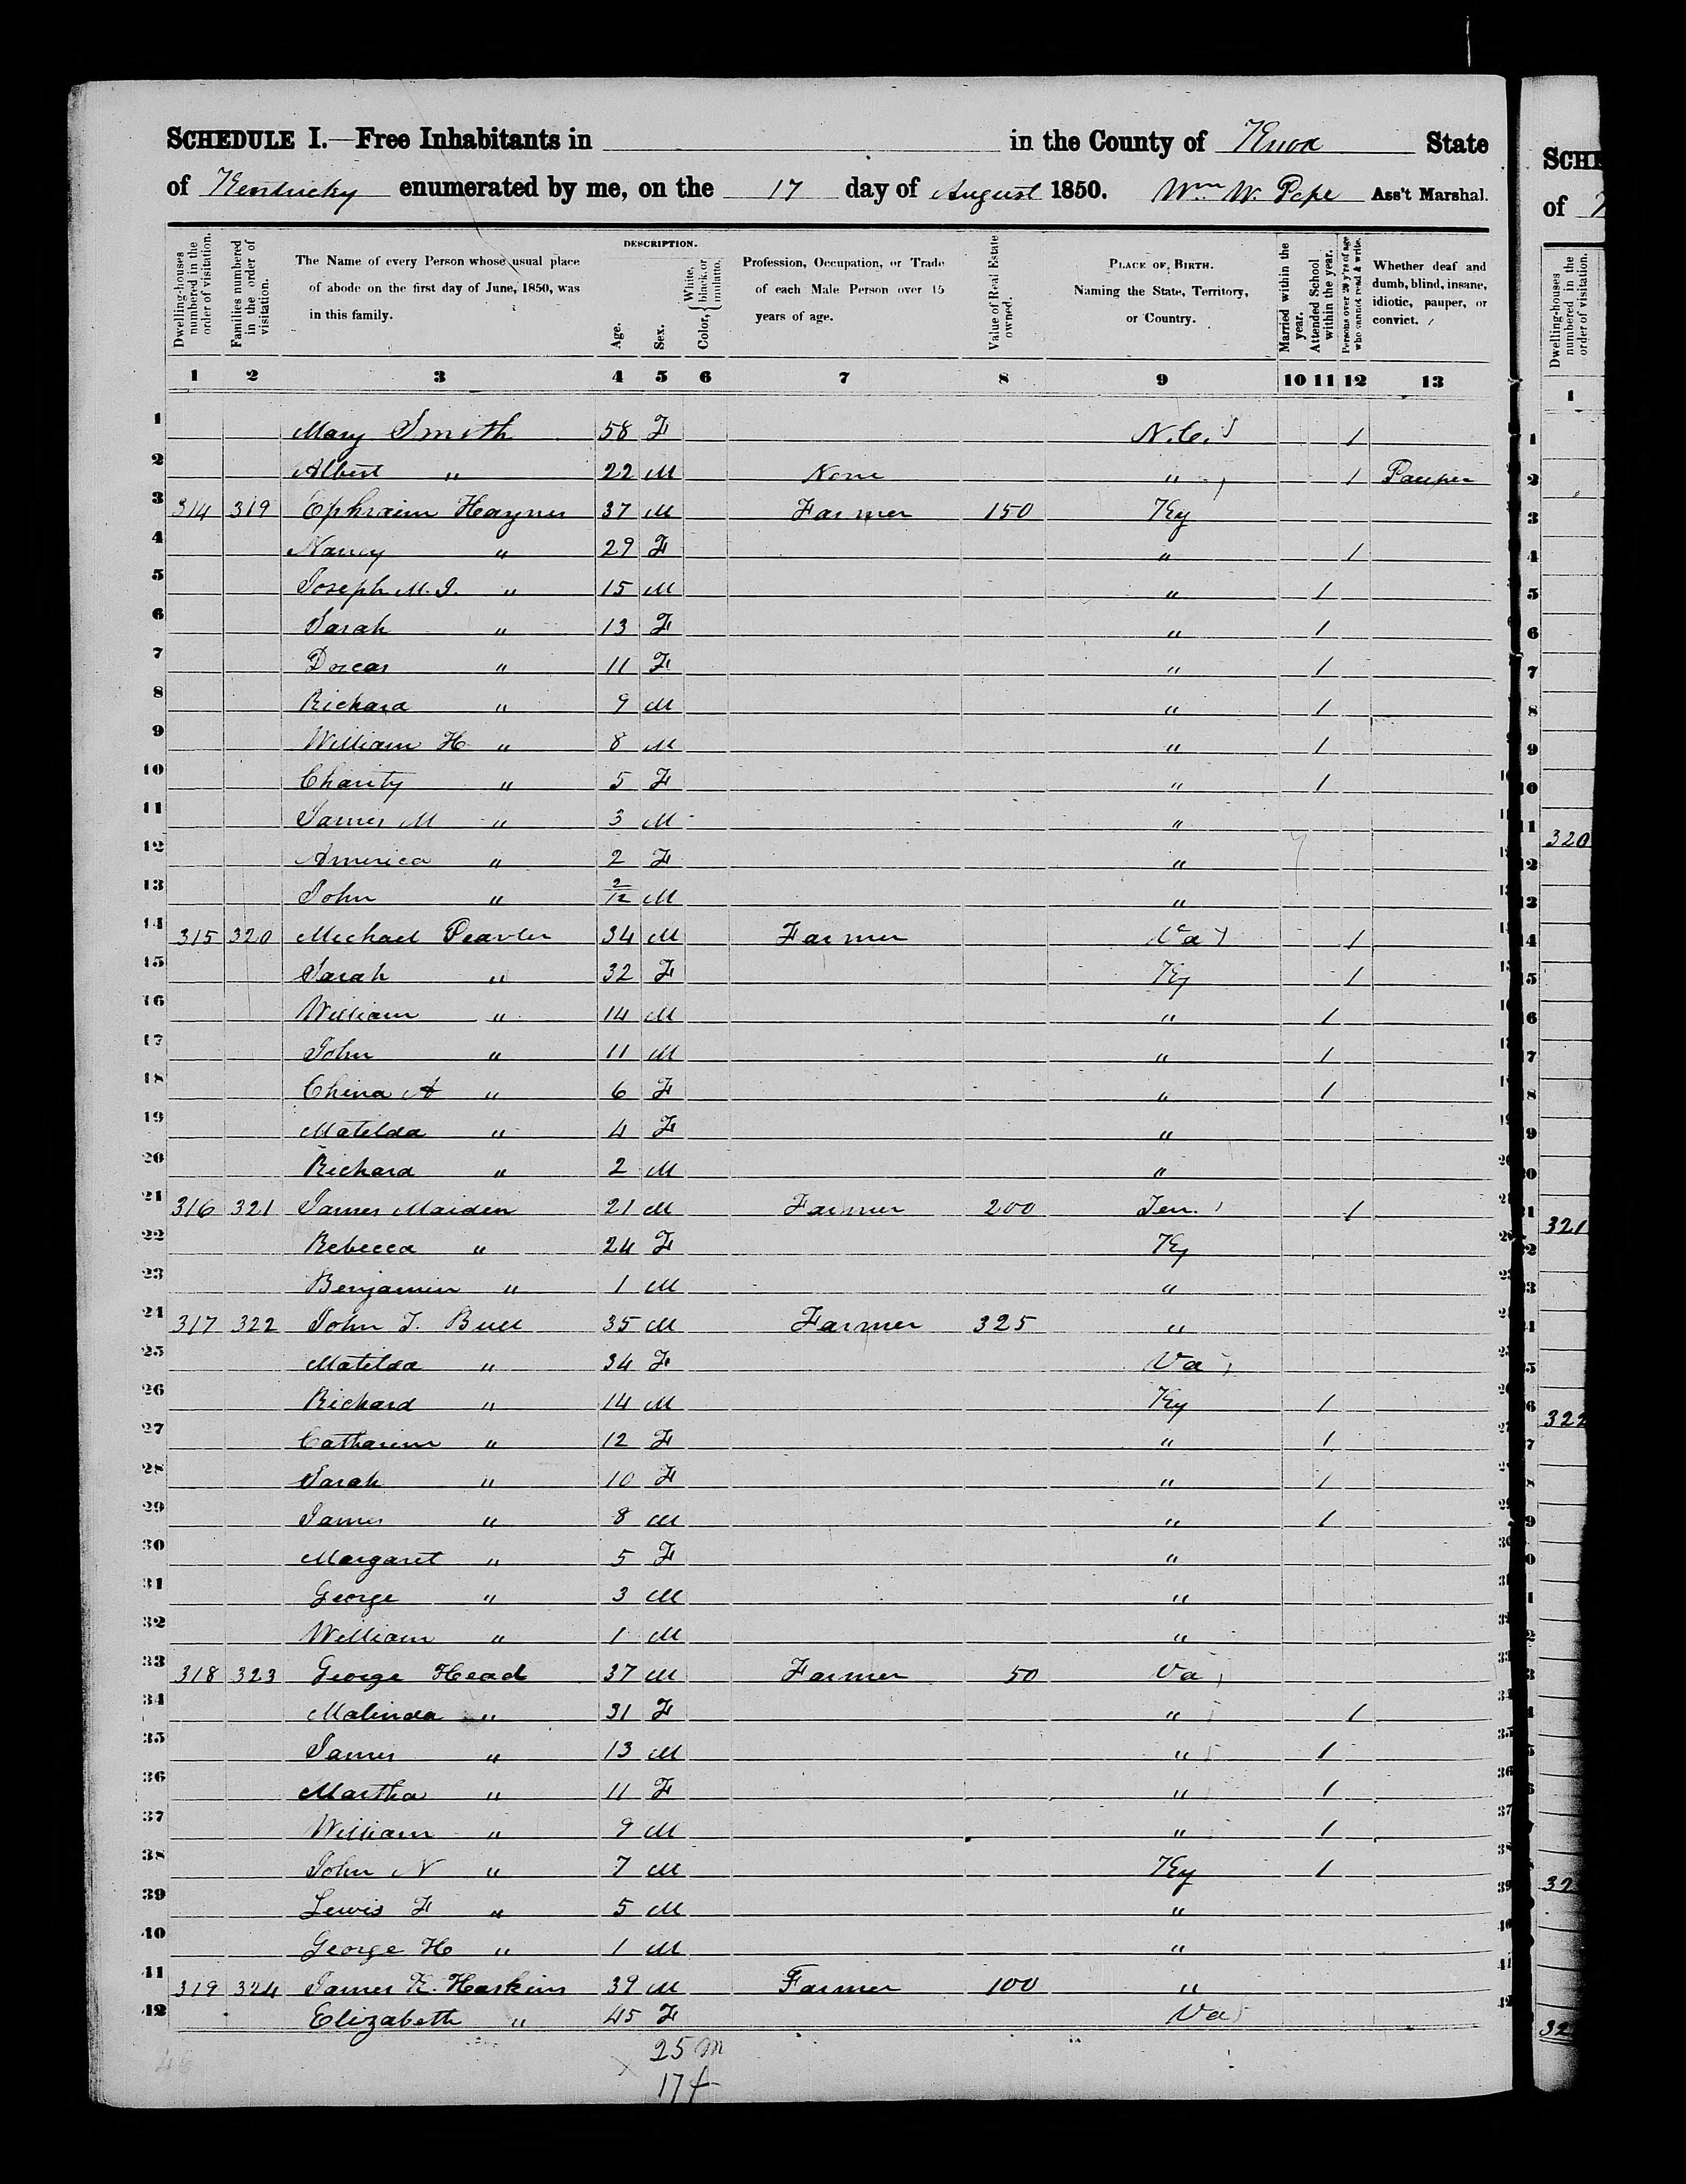 SCHEDULE I.—Free Inhabitants in in the County of Knox State
of Kentucky enumerated by me, on the 17 day of August 1850. Wm W. Pope Ass't Marshal.
Dwelling-houses numbered in the order of visitation.
Families numbered in the order of visitation.
The Name of every Person whose usual place of abode on the first day of June, 1850, was in this family.
DESCRIPTION.
Age.
Sex.
Color, { White, black, or mulatto.
Profession, Occupation, or Trade of each Male Person over 15 years of age.
Value of Real Estate owned.
PLACE OF BIRTH. Naming the State, Territory, or Country.
Married within the year.
Attended School within the year.
Persons over 20 y'rs of age who cannot read & write.
Whether deaf and dumb, blind, insane, idiotic, pauper, or convict.
1 2 3 4 5 6 7 8 9 10 11 12 13
1 Mary Smith 58 F N.C. 1
2 Albert " 22 M None " 1 Pauper
3 314 319 Ephraim Haynes 37 M Farmer 150 Ky
4 Nancy " 29 F " 1
5 Joseph M. J. " 15 M " 1
6 Sarah " 13 F " 1
7 Dorcas " 11 F " 1
8 Richard " 9 M " 1
9 William H " 8 M " 1
10 Charity " 5 F " 1
11 James M " 3 M "
12 America " 2 F "
13 John " 2/12 M "
14 315 320 Michael 34 M Farmer Va 1
15 Sarah " 32 F Ky 1
16 William " 14 M " 1
17 John " 11 M " 1
18 China A " 6 F " 1
19 Matilda " 4 F "
20 Richard " 2 M "
21 316 321 James Maiden 21 M Farmer 200 Ten. 1
22 Rebecca " 24 F Ky
23 Benjamin " 1 M "
24 317 322 John T. Bull 35 M Farmer 325 "
25 Matilda " 34 F Va
26 Richard " 14 M Ky 1
27 Catharine " 12 F " 1
28 Sarah " 10 F " 1
29 James " 8 M " 1
30 Margaret " 5 F "
31 George " 3 M "
32 William " 1 M "
33 318 323 George Head 37 M Farmer 50 Va
34 Malinda " 31 F " 1
35 James " 13 M " 1
36 Martha " 11 F " 1
37 William " 9 M " 1
38 John N " 7 M Ky 1
39 Lewis F " 5 M "
40 George H " 1 M "
41 319 324 James K. Haskins 39 M Farmer 100 "
42 Elizabeth " 45 F Va
25 m
17 f
SCHE
of
Dwelling-houses numbered in the order of visitation.
1
320
321
322